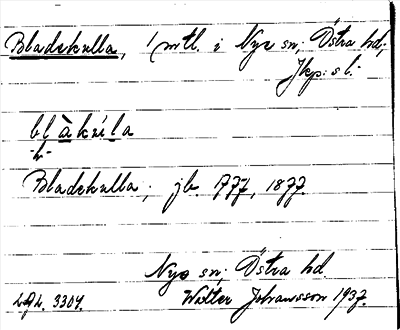 Bladekulla, 1 mtl. i Nye sn; Östra hd;
Jkp:s l.
blàkúla
-h-
Bladekulla; jb. 1777, 1877.
Nye sn; Östra hd.
Walter Johansson 1937.